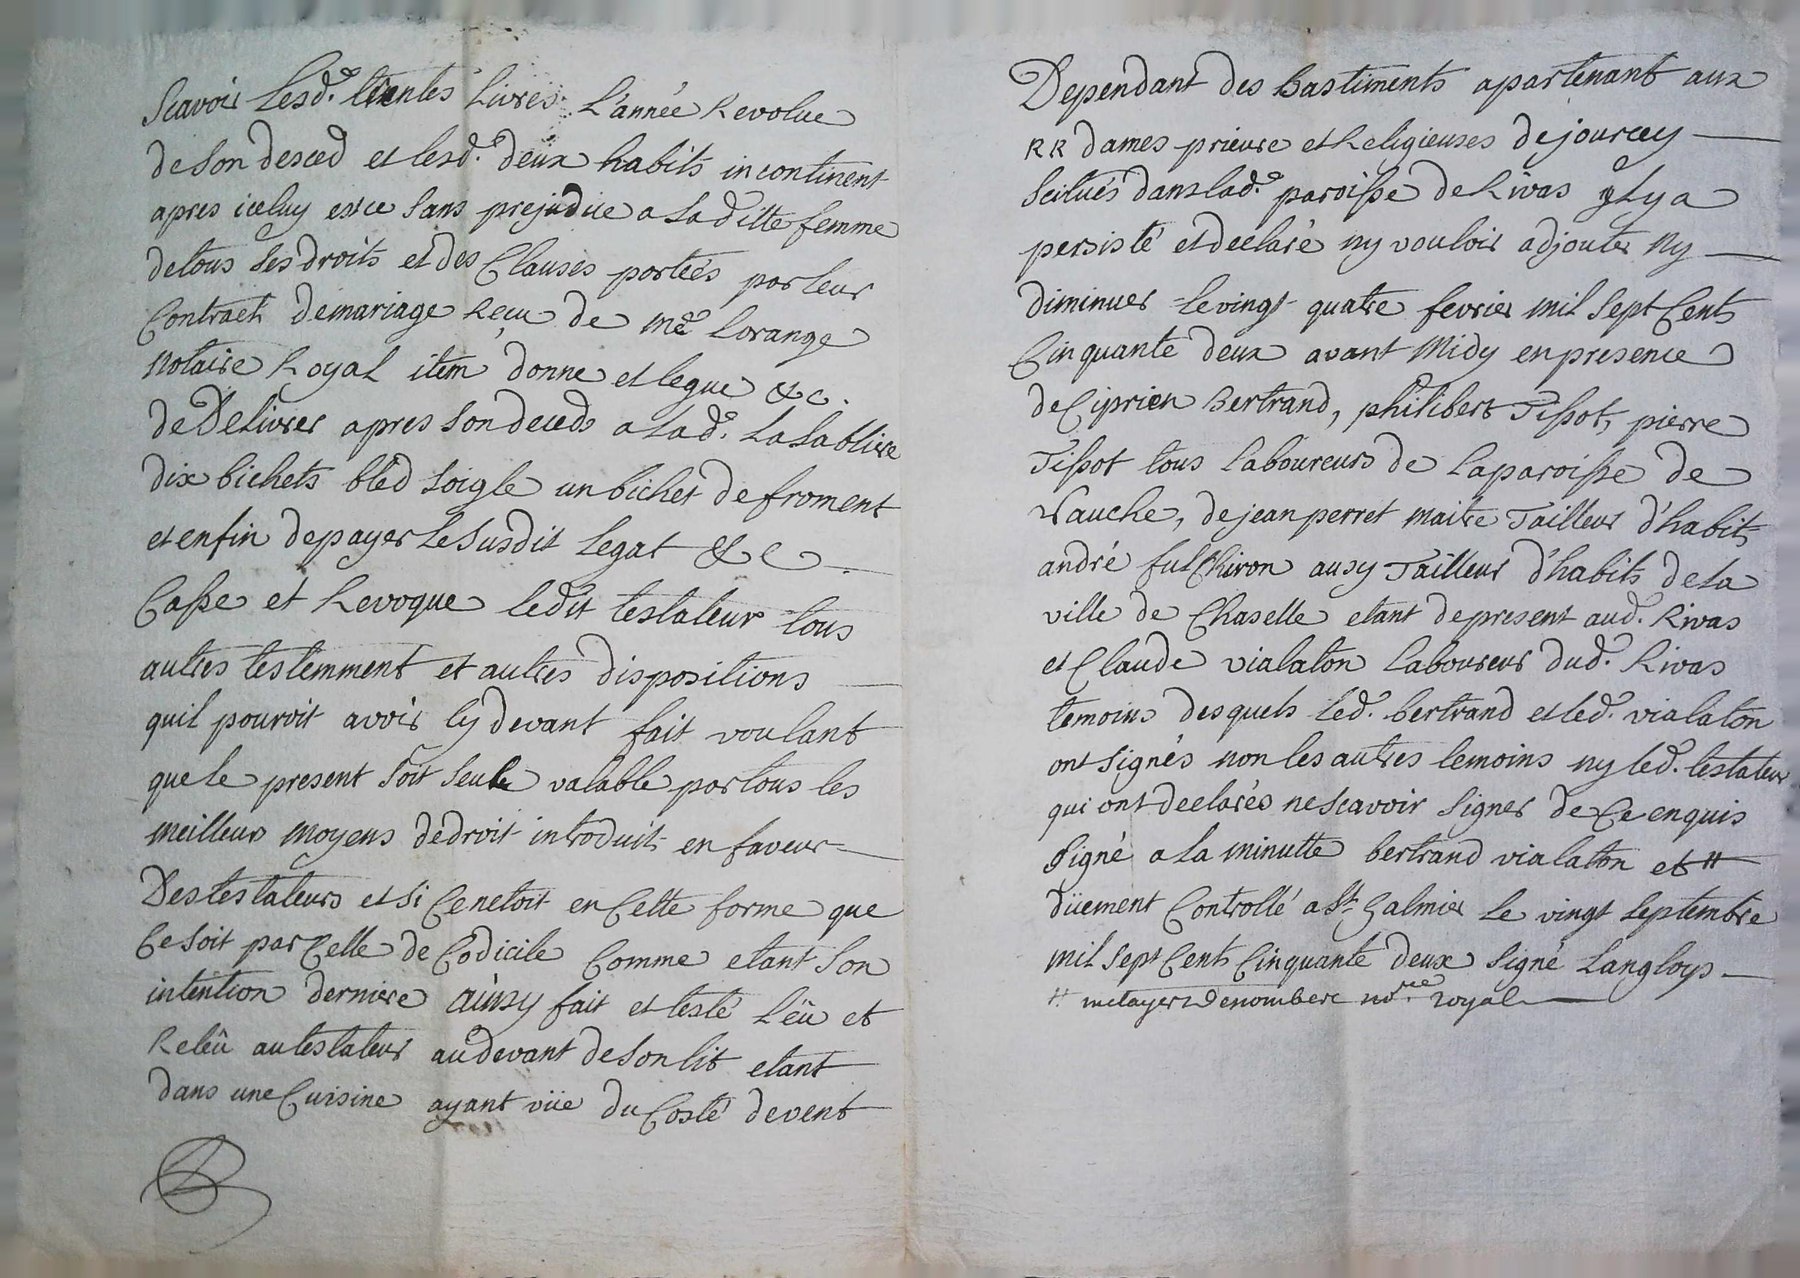 Scavoir Lesd. trentes Livres L'année Revolue
de son desced et lesd. deux habits incontinent
apres iceluy esvce sans prejudice a sa ditte femme
de tous ses droits et des Clauses portées par leur
Contract de mariage Reçu de me Lorange
notaire Royal item donne et legue &c.
de Delivrer apres son deceds a lad. La Sabliere
dix bichets bléd soigle un bichet de froment
et enfin de payer le susdit legat &c
Casse et Revoque ledit testateur tous
autres testemment et autres dispositions
quil pouroit avoir cy devant fait voulant
que le present soit seule valable par tous les
meilleurs moyens de droit introduit en faveur
Des testateurs et si Ce netoit en Cette forme que
Ce soit par Celle de Codicile Comme etant Son
intention derniere ainsy fait et testé Lëu et
Relëu au testateur au devant de son lit etant
dans une Cuisine ayant vüe du Costé de vent
Dependant des Bastiments apartenant aux
RR dames prieure et Religieuses de jourcey
Scitués dans lad. paroisse de Rivas y Ly a
persisté et declaré ny vouloir adjouter ny
diminuer Le vingt quatre fevrier mil Sept Cents
Cinquante deux avant Midy en presence
de Ciprien Bertrand, philibert Tissot, pierre
Tissot tous Laboureurs de La paroisse de
Vauche, de jean perret maitre Tailleur d'habits
andré fulchiron ausy Tailleur d'habits de La
ville de Chaselle etant de present aud. Rivas
et Claude vialaton Laboureur dud. Rivas
temoins desquels led. bertrand et led. vialaton
ont signés non les autres temoins ny led. testateur
qui ont declarés ne scavoir signer de Ce enquis
signé a la minutte bertrand vialaton et #
düement Controllé a St. Galmier Le vingt septembre
mil sept Cents Cinquante deux signé Langloys
# metayer Denombere nore royal